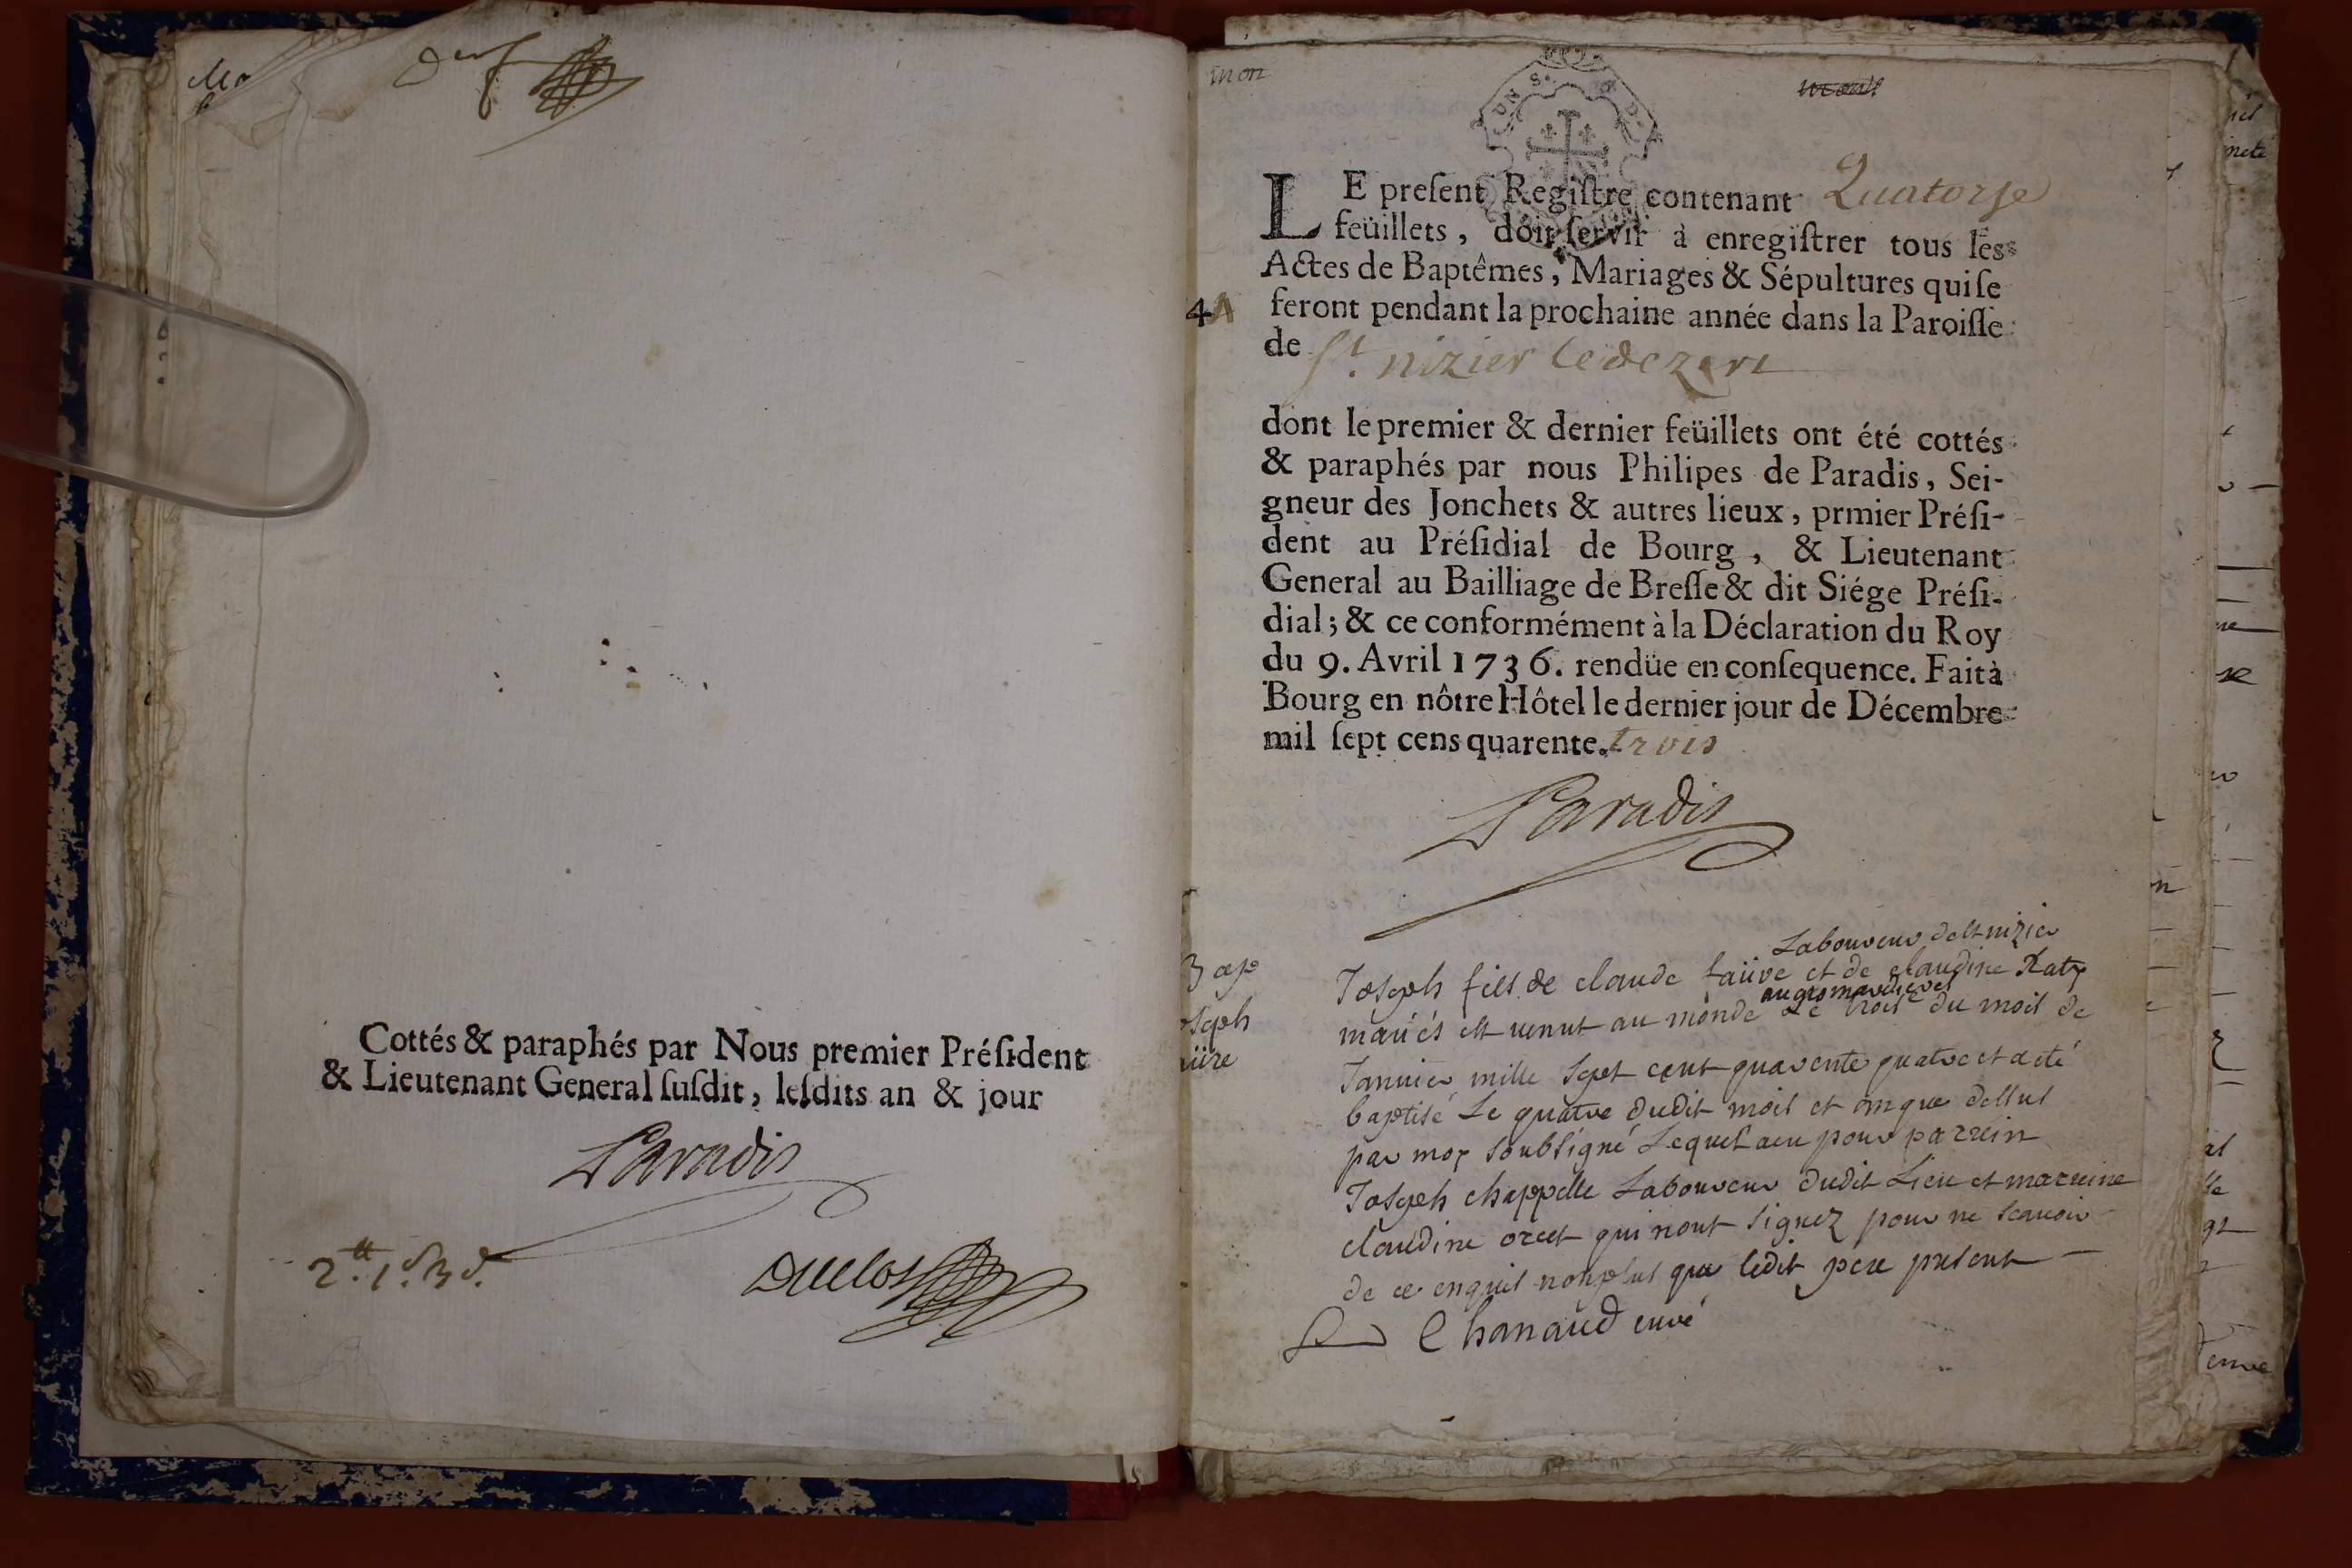 Cottés & paraphés par Nous premier Préſident
& Lieutenant General ſuſdit, leſdits an & jour
Paradis
2.tt 1.s 3 d.
Duclos
LE preſent Regiſtre contenant Quatorze
feüillets, doit ſervir à enregiſtrer tous les
Actes de Baptêmes, Mariages & Sépultures qui ſe
feront pendant la prochaine année dans la Paroiſſe
de St. nizier le dezert
dont le premier & dernier feüillets ont été cottés
& paraphés par nous Philipes de Paradis, Sei-
gneur des Jonchets & autres lieux, prmier Préſi-
dent au Préſidial de Bourg, & Lieutenant
General au Bailliage de Breſſe & dit Siége Préſi-
dial; & ce conformément à la Déclaration du Roy
du 9. Avril 1736. rendüe en conſequence. Fait à
Bourg en nôtre Hôtel le dernier jour de Décembre
mil ſept cens quarente. trois
Paradis
Bap
oseph
aüre
Laboureur de st nizier
Joseph fils de claude faüre et de claudine Raty
mariés est venut au monde Le trois du mois de
Januier mille sept cent quarente quatre et a eté
baptisé Le quatre dudit mois et an que dessus
par moy soubsigné Lequel a eu pour parrein
Joseph chappelle Laboureur dudit Lieu et marreine
claudine orcet qui n'ont signez pour ne scauoir
de ce enquis nonplus que ledit pere present
Chanaud curé